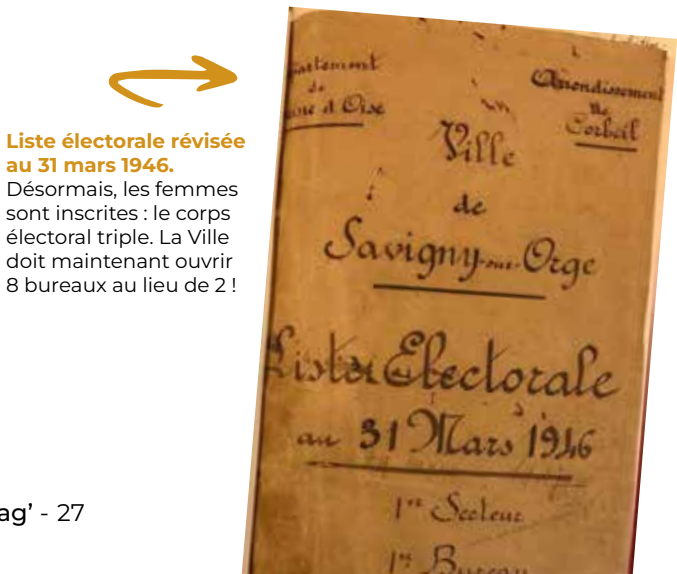 Liste électorale révisée
au 31 mars 1946.
Désormais, les femmes
sont inscrites : le corps
électoral triple. La Ville
doit maintenant ouvrir
8 bureaux au lieu de 2 !
artement
de
ine d'Oise
Arrondissement
de
Corbeil
Ville
de
Savigny-sur-Orge
Liste Electorale
au 31 Mars 1946
1er Secteur
1er Bureau
ag' - 27